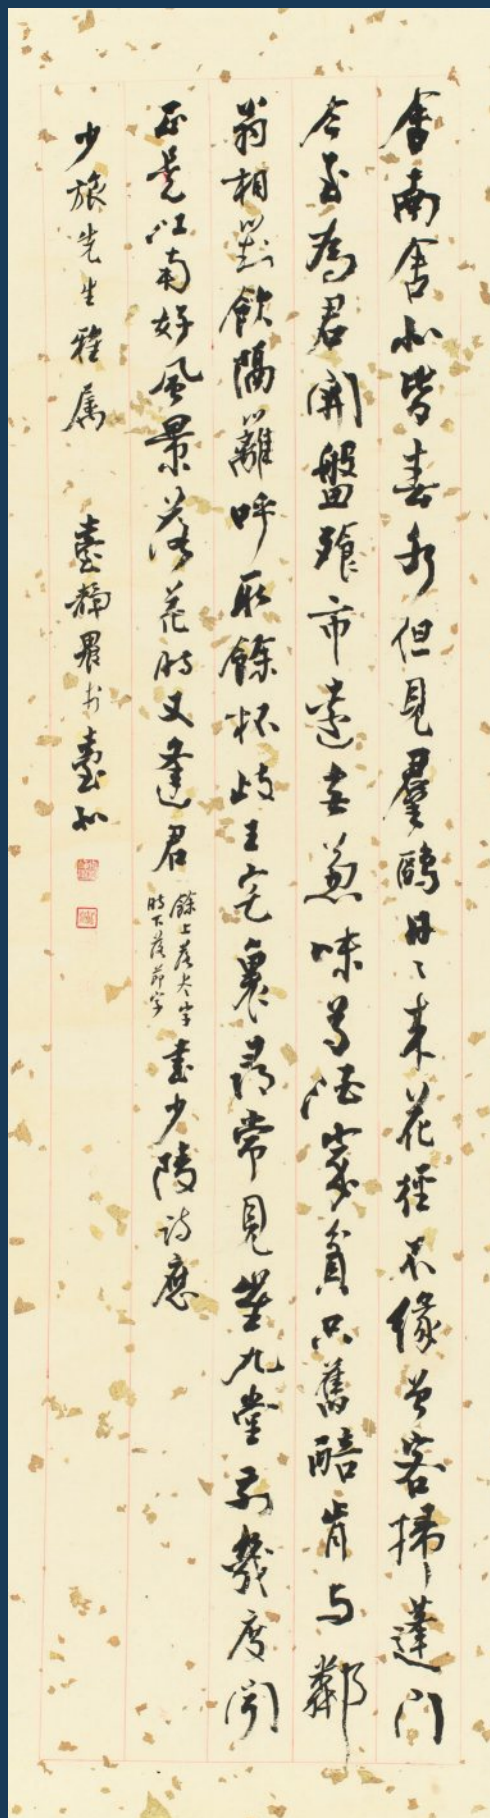 舍南舍北皆春水但見羣鷗日〻來花徑不緣曾客掃蓬門
今始為君開盤飧市遠無兼味尊酒家貧只舊醅肯与鄰
翁相對飲隔籬呼取餘杯歧王宅裏尋常見崔九堂前幾度聞
正是江南好風景落花時又逢君
餘上落尽字
時下落節字
書少陵詩應
少旅先生雅属 臺靜農书臺北